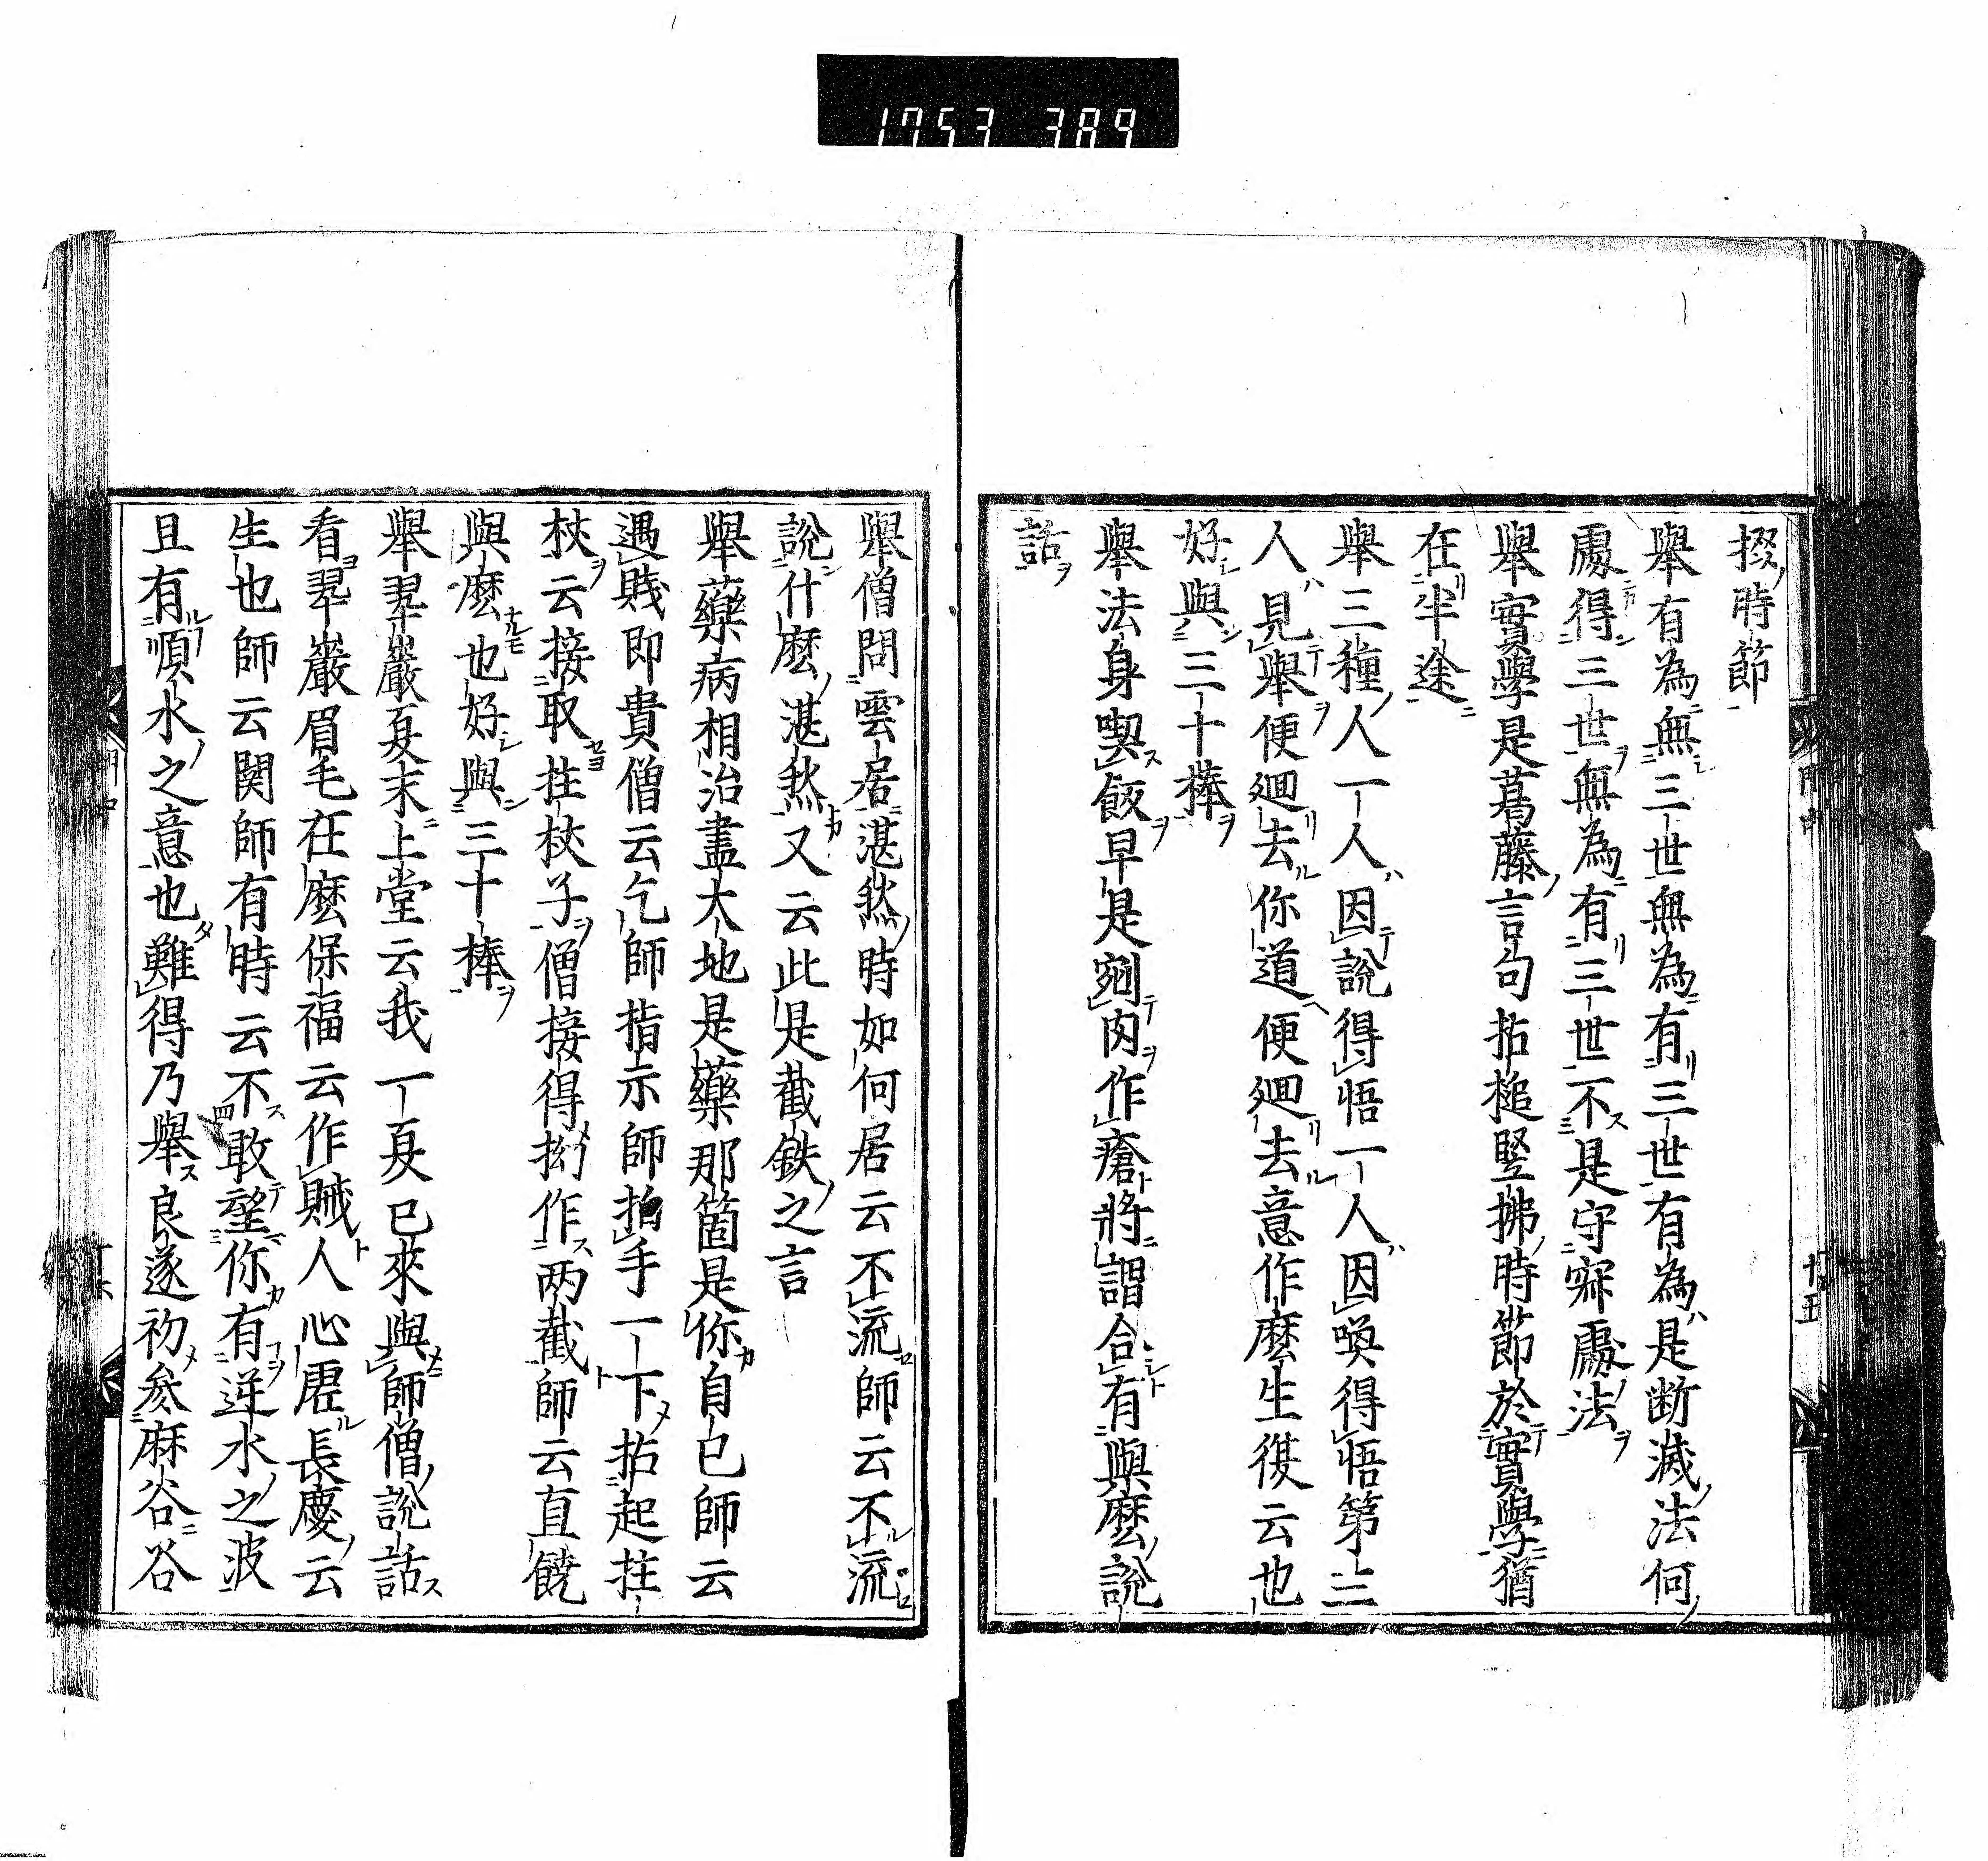 1753 389
掇時節
舉有為無三世無為有三世有為是断滅法何
處得三世無為有三世不是守寂處法
舉實學是葛藤言句拈槌竪拂時節於實學猶
在半途
舉三種人一人因說得悟一人因喚得悟第三
人見舉便廻去你道便廻去意作麼生復云也
好與三十棒
舉法身喫飯早是剜肉作瘡將謂合有與麼說
話
舉僧問雲居湛然時如何居云不流師云不流
說什麼湛然又云此是截鉄之言
舉藥病相治盡大地是藥那箇是你自己師云
遇賤即貴僧云乞師指示師拍手一下拈起拄
杖云接取拄杖子僧接得拗作两截師云直饒
與麼也好與三十棒
舉翠巖夏末上堂云我一夏已來與師僧說話
看翠巖眉毛在麼保福云作賊人心虛長慶云
生也師云関師有時云不敢望你有逆水之波
且有順水之意也難得乃舉良遂初參麻谷谷